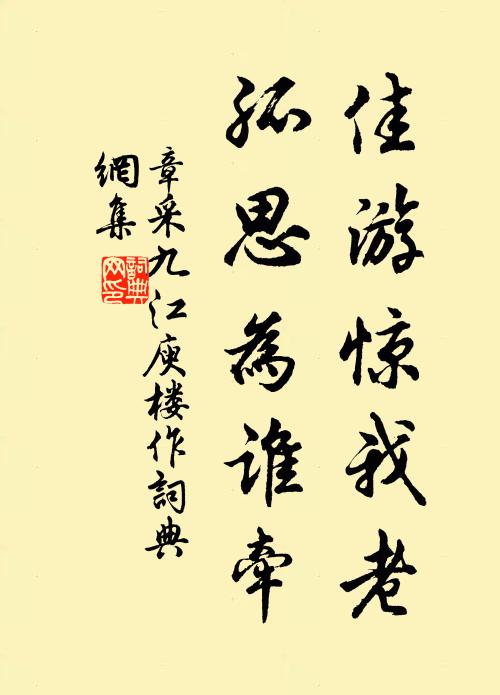 佳游惊我老
孤思為谁牽
章采九江庾楼作詞典
網集
詞典
网印